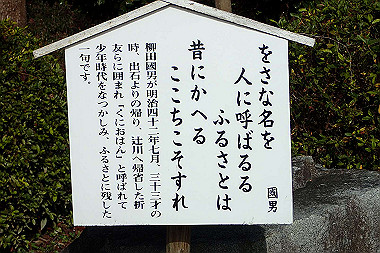 をさな名を
人に呼ばるる
ふるさとは
昔にかへる
ここちこそすれ
國男
柳田國男が明治四十二年七月、三十三才の
時、出石よりの帰り、辻川へ帰省した折
友らに囲まれ「くにおはん」と呼ばれて
少年時代をなつかしみ、ふるさとに残した
一句です。